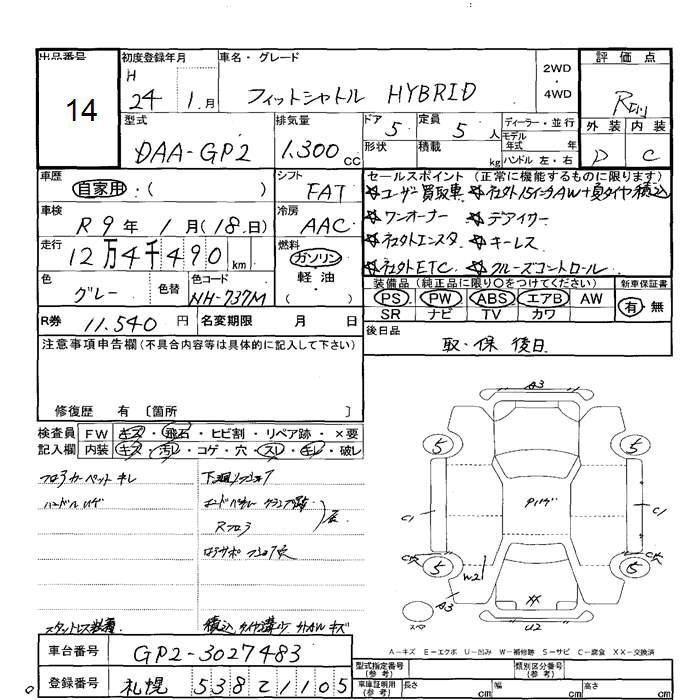 出品番号
14
初度登録年月
H
24 1.月
車名・グレード
フィットシャトル HYBRID
2WD
4WD
評価点
R
外装 内装
D C
型式
DAA-GP2
排気量
1.300 cc
ドア
5
定員
5 人
形状
積載
kg
ディーラー・並行
モデル
年式 年
ハンドル 左・右
車歴
自家用 :( )
シフト
FAT
車検
R 9 年 1 月(18.日)
冷房
AAC
走行
12万4千490 km
燃料
ガソリン
軽油
( )
色
グレー
色替
色コード
NH-737M
R券 11.540 円
名変期限 月 日
セールスポイント(正常に機能するものに限ります)
☆ユーザー買取車 ☆社外15インチAW+夏タイヤ積込
☆ワンオーナー ☆デアイサー
☆社外エンスタ ☆キーレス
☆社外ETC ☆クルーズコントロール
装備品(純正品に限り○をつけてください)
PS PW ABS エアB AW
SR ナビ TV カワ
新車保証書
有・無
後日品
取・保 後日
注意事項申告欄(不具合内容等は具体的に記入して下さい)
修復歴 有〔箇所 〕
検査員
記入欄
FW キズ・飛石・ヒビ割・リペア跡・×要
内装 キズ・汚レ・コゲ・穴・スレ・キレ・破レ
フロアカーペットキレ
ハンドル
Rフロア
スタットレス装着
A3
5
5
C1
C1
5
5
W2
A3
XX
U2
スペア
A-キズ E-エクボ U-凹み W-補修跡 S-サビ C-腐食 XX-交換済
車台番号
GP2-3027483
登録番号
札幌 538 ح 1105
型式指定番号
(参考)
類別区分番号
(参考)
車庫証明用
(参考)
長さ cm 幅 cm 高さ cm